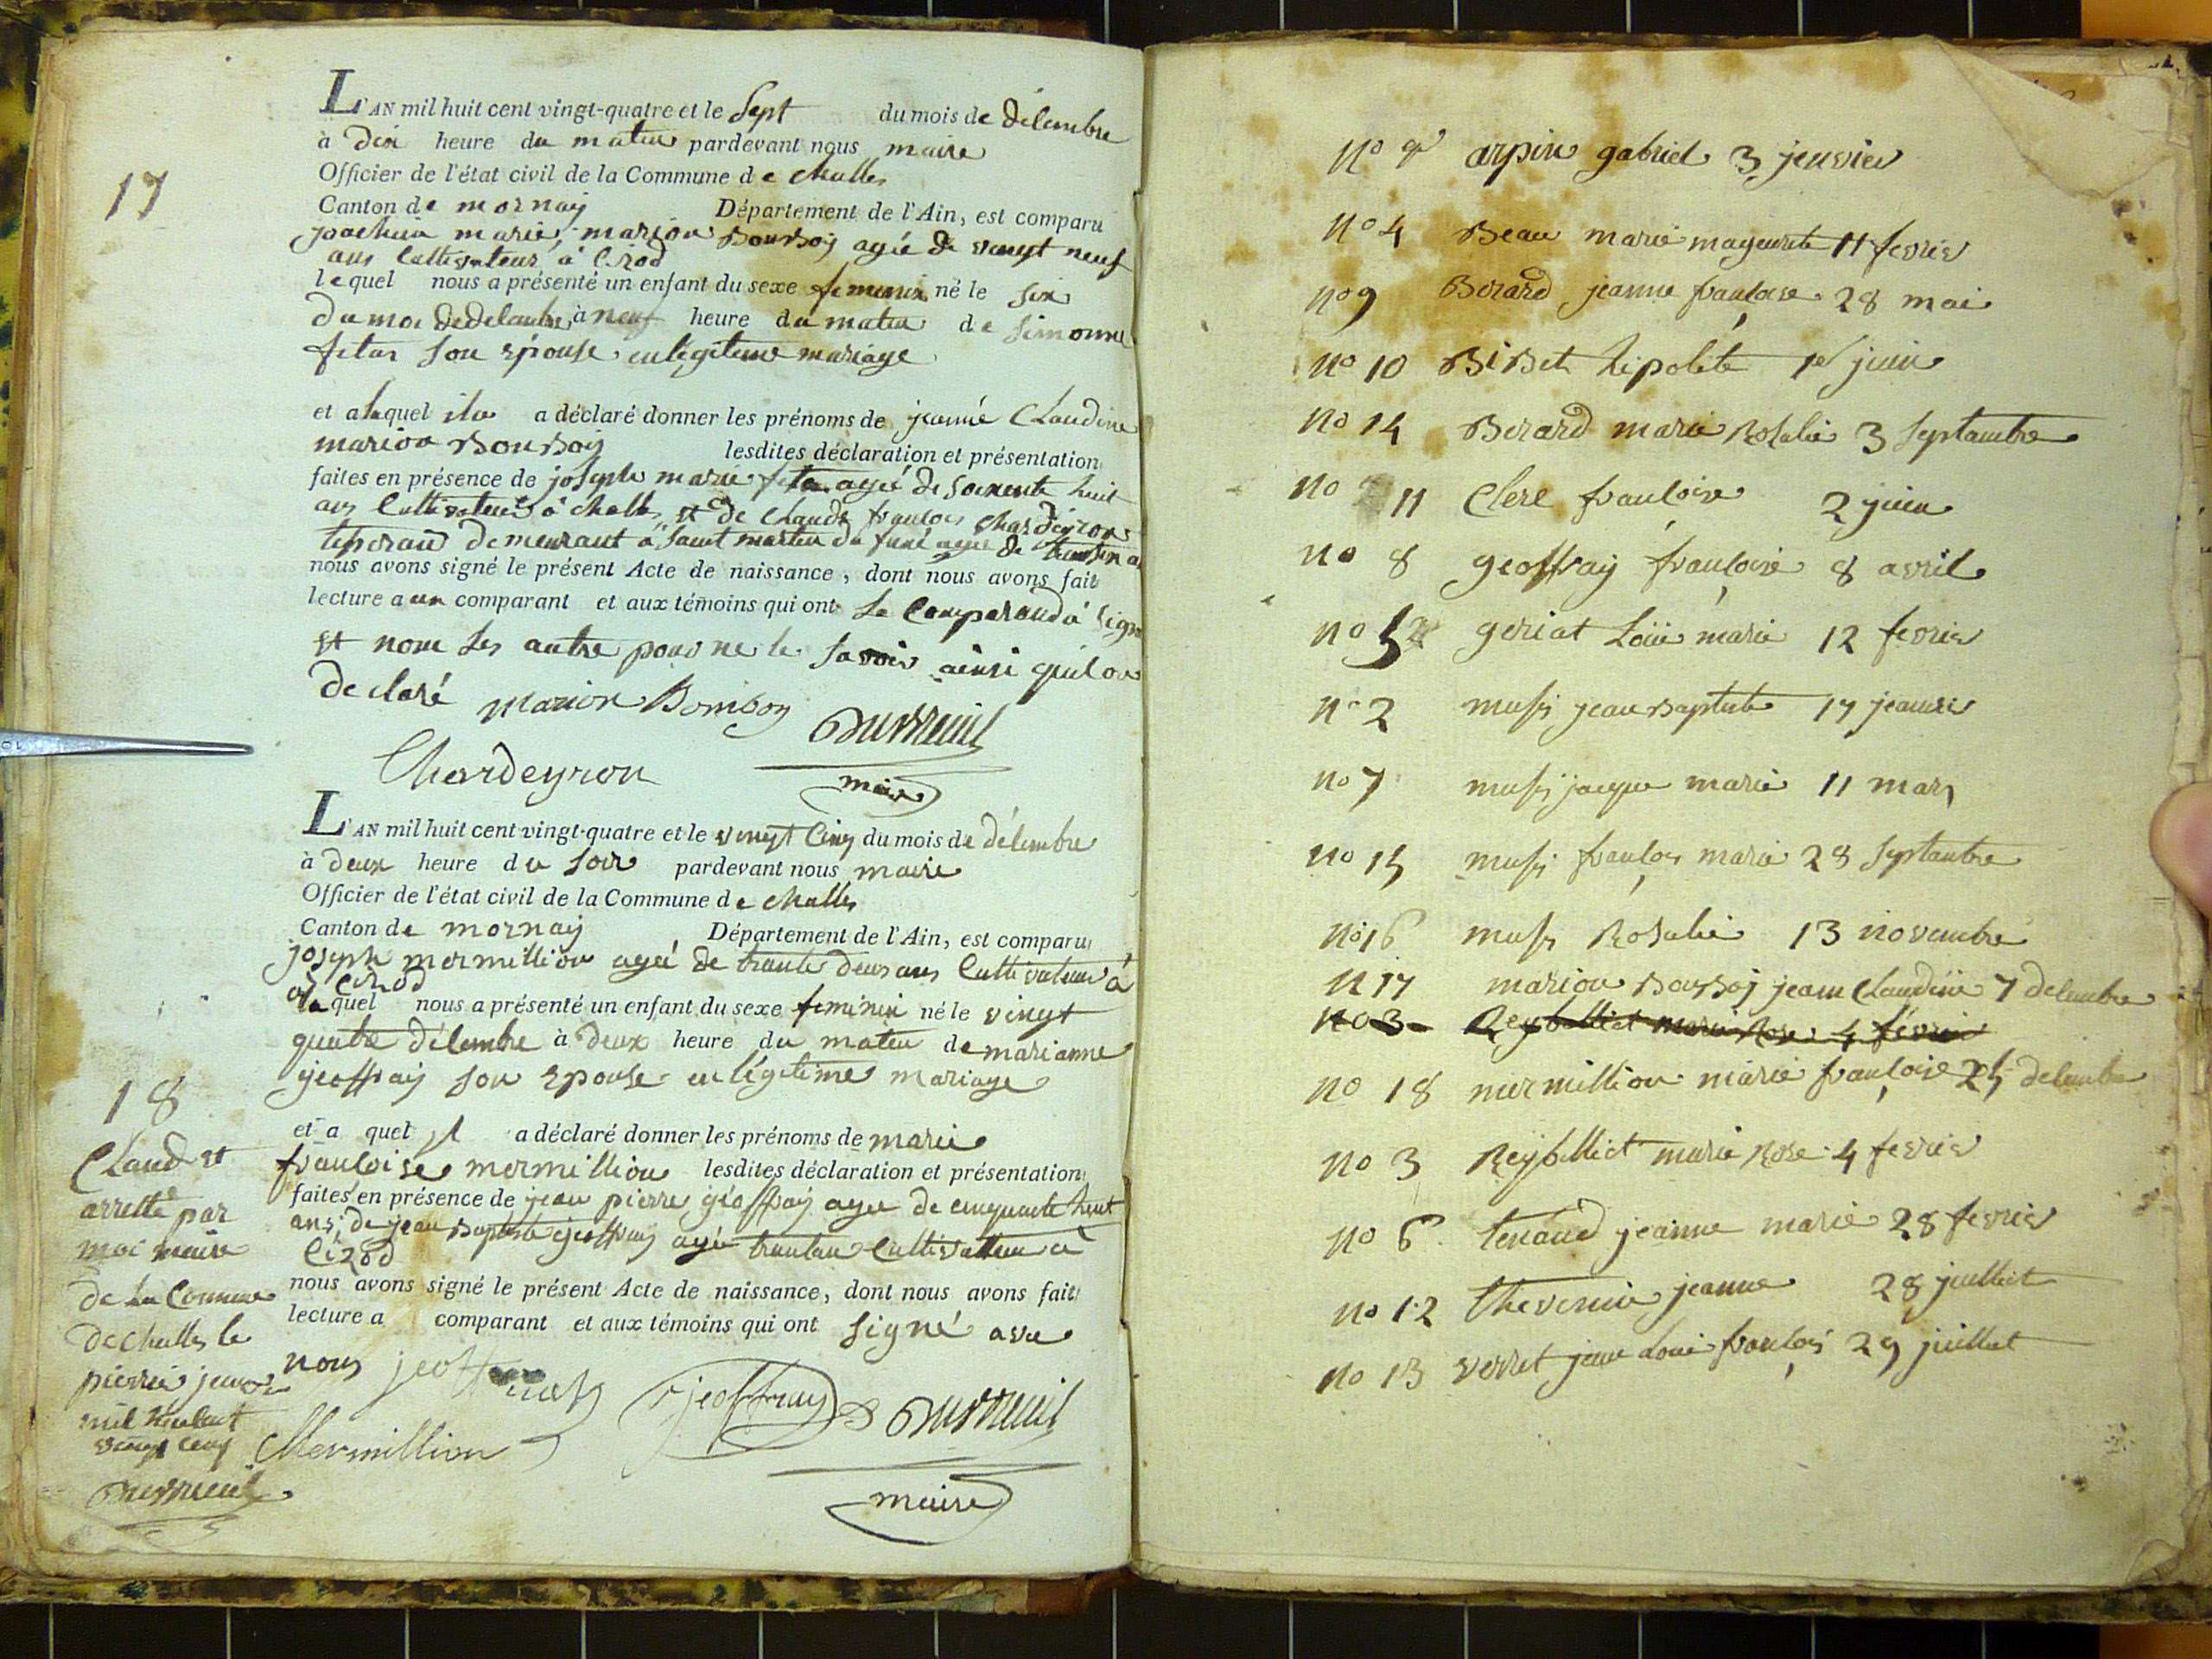 L'AN mil huit cent vingt-quatre et le Sept du mois de décembre
à Dix heure du matin pardevant nous maire
Officier de l'état civil de la Commune de challes
17
Canton de mornay Département de l'Ain, est comparu
joachim marie marion Bonboy agée de vingt neuf
ans Cultivateur à Cizod
lequel nous a présenté un enfant du sexe feminin né le six
Du moi de décembre à neuf heure du matin de simonne
fétas son épouse en légitime mariage
et alaquel ila a déclaré donner les prénoms de jeanne Claudine
marion Bonboy lesdites déclaration et présentation
faites en présence de joseph marie agée de soixente huit
ans Cultivateur à challes et de Claude francois Chardeyron
demeurant à saint martin du agée de
nous avons signé le présent Acte de naissance, dont nous avons fait
lecture a au comparant et aux témoins qui ont Le Comparand à signé
et nom les autre pour ne le savoir ainsi quil on
declaré marion Bomboy Dubreuil
Chardeyron maire
L'AN mil huit cent vingt-quatre et le vingt Cinq du mois de décembre
à deux heure du soir pardevant nous maire
Officier de l'état civil de la Commune de challes
Canton de mornay Département de l'Ain, est comparu
joseph mermillion agée de trante deux ans Cultivateur à
Cizod
laquel nous a présenté un enfant du sexe feminin né le vingt
quatre décembre à deux heure du matin de marianne
geoffray son épouse en légitime mariage
18
et a quel il a déclaré donner les prénoms de marie
francoise mermillion lesdites déclaration et présentation
faites en présence de jean pierre geoffray agée de cinquante huit
ans, de jean Baptiste geoffray agée Cultivateur à
Cizod
nous avons signé le présent Acte de naissance, dont nous avons fait
lecture a comparant et aux témoins qui ont signé avec
nous geoffray Dubreuil
Mermillion maire
Claud et
arretté par
moi maire
de la Commune
de challes le
janvier
mil huit cent
vingt cinq
Dubreuil
no 1er arpin gabriel 3 jenvier
no 4 Beau marie magurite 11 fevrier
no 9 Berard jeanne françoise 28 mai
no 10 BiBet hipolite 1er juin
no 14 Berard marie Rosalie 3 Septambre
no 11 Clerc françoise 2 juin
no 8 geoffray françoise 8 avril
no 5 geriat Loüi marie 12 fevrier
no 2 mussy jean Baptiste 17 jeanvier
no 7 mussy jacque marie 11 mars
no 15 mussy françois marie 28 Septambre
no 16 mussy Rosalie 13 novembre
n 17 marion Bonboy jeanne Claudine 7 decembre
no 3 Reybilliet marie Rose 4 fevrier
no 18 mermillion marie françoise 25 decembre
no 3 Reybilliet marie Rose 4 fevrier
no 6 tenand jeanne marie 28 fevrier
no 12 thevenin jeanne 28 juilliet
no 13 verret jean Loui françois 29 juillet